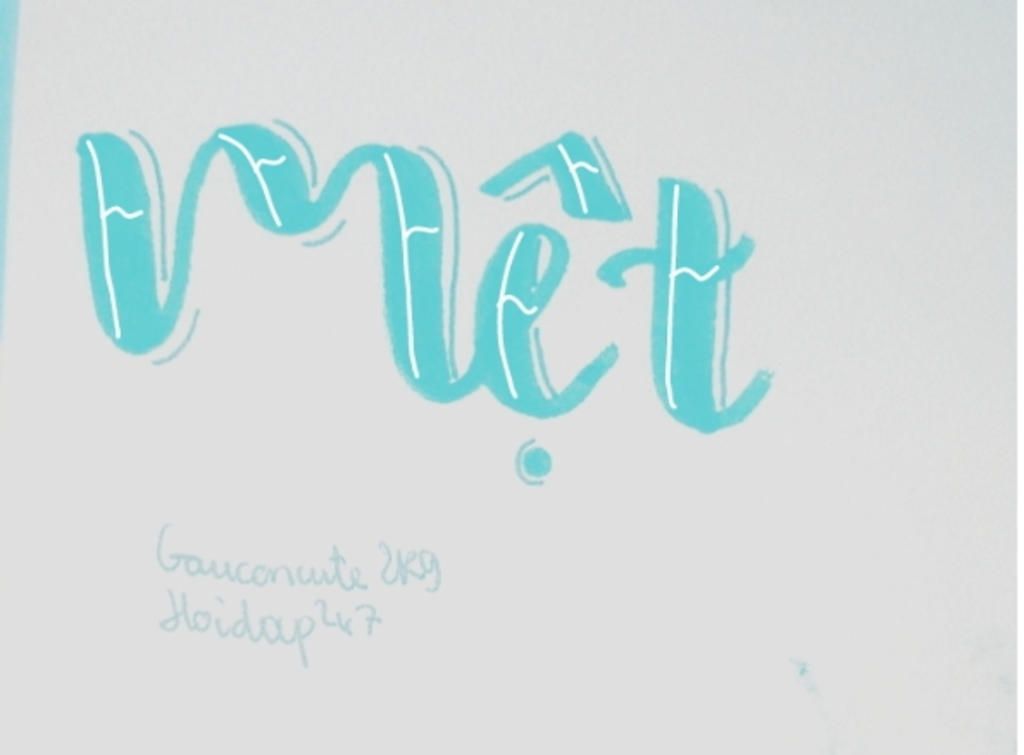 Mệt
Gauconcute 2k9
Hoidap247